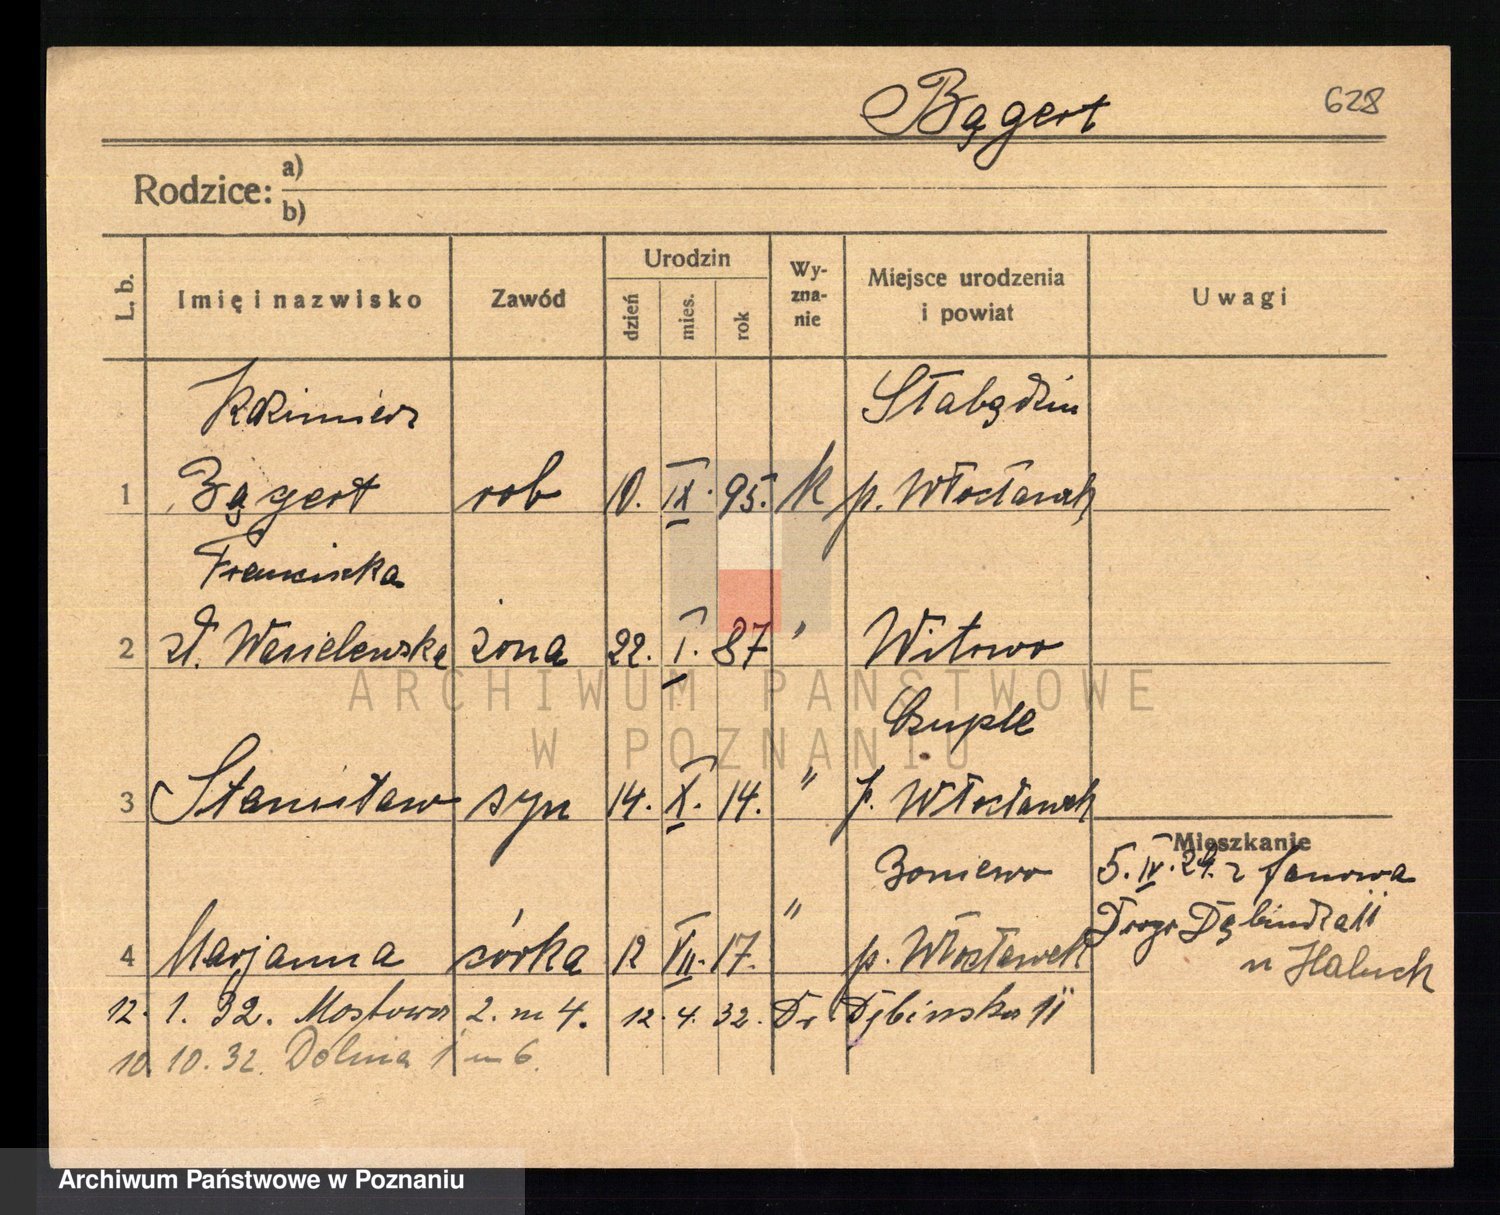 Bągert
628
Rodzice: a)
b)
L. b.
Imię i nazwisko
Zawód
Urodzin
dzień
mies.
rok
Wy-
zna-
nie
Miejsce urodzenia
i powiat
Uwagi
Kazimierz Słabędzin
1 Bągert rob 10. IX. 95. k p. Włocławek
Franciszka
2 zd. Wasielewska żona 22. I. 87 " Witowo
Czuple
3 Stanisław syn 14. X. 14. " p. Włocławek
Mieszkanie
Boniewo 5. IV. 24. z Janowa
Droga Dębińska 11
4 Marjanna córka 12 VII. 17. " p. Włocławek
12. 1. 32. Mostowa 2. m 4. 12. 4. 32. Dr. Dębińska 11
10. 10. 32. Dolna 1 m 6.
ARCHIWUM PAŃSTWOWE
W POZNANIU
Archiwum Państwowe w Poznaniu